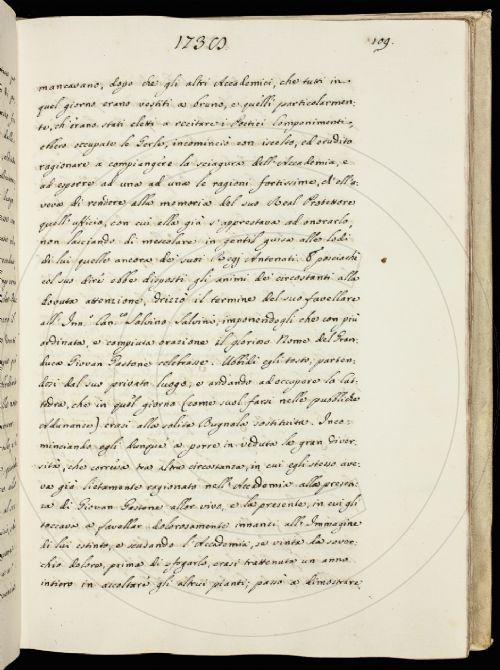 1738.
109.
mancavano, dopo che gli altri Accademici, che tutti in
quel giorno erano vestiti a bruno, e quelli particolarmen-
te, ch'erano stati eletti a recitare i Poetici Componimenti,
ebbero occupate le Gerle, incominciò con iscelto, ed erudito
ragionare a compiangere la sciagura dell'Accademia, e
ad esporre ad una ad una le ragioni fortissime, ch'ella
aveva di rendere alla memoria del suo Real Protettore
quell'ufficio, con cui ella già s'apprestava ad onorarlo,
non lasciando di mescolare in gentil guisa alle lodi
di lui quelle ancora de' suoi Regj Antenati. E poiaché
col suo dire ebbe disposti gli animi de' circostanti alla
dovuta attenzione, drizzò il termine del suo favellare
all' Inn.to Can.co Salvino Salvini, imponendogli che con più
ordinata, e compiuta orazione il glorioso Nome del Gran-
duca Giovan Gastone celebrasse. Ubbidì egli tosto, parten-
dosi dal suo privato luogo, e andando ad occupare la Cat-
tedra, che in quel giorno (come suol farsi nelle pubbliche
adunanze) erasi alla solita Bugnola sostituita. Inco-
minciando egli dunque a porre in veduta la gran diver-
sità, che correva tra altra circostanza, in cui egli stesso ave-
va già lietamente ragionato nell'Accademia alla presen-
za di Giovan Gastone allor vivo, e la presente, in cui gli
toccava a favellar dolorosamente innanzi all'Immagine
di lui estinto, e scusando l'Accademia, se vinta da sover-
chio dolore, prima di sfogarlo, erasi trattenuta un anno
intiero in ascoltare gli altrui pianti; passò a dimostrare